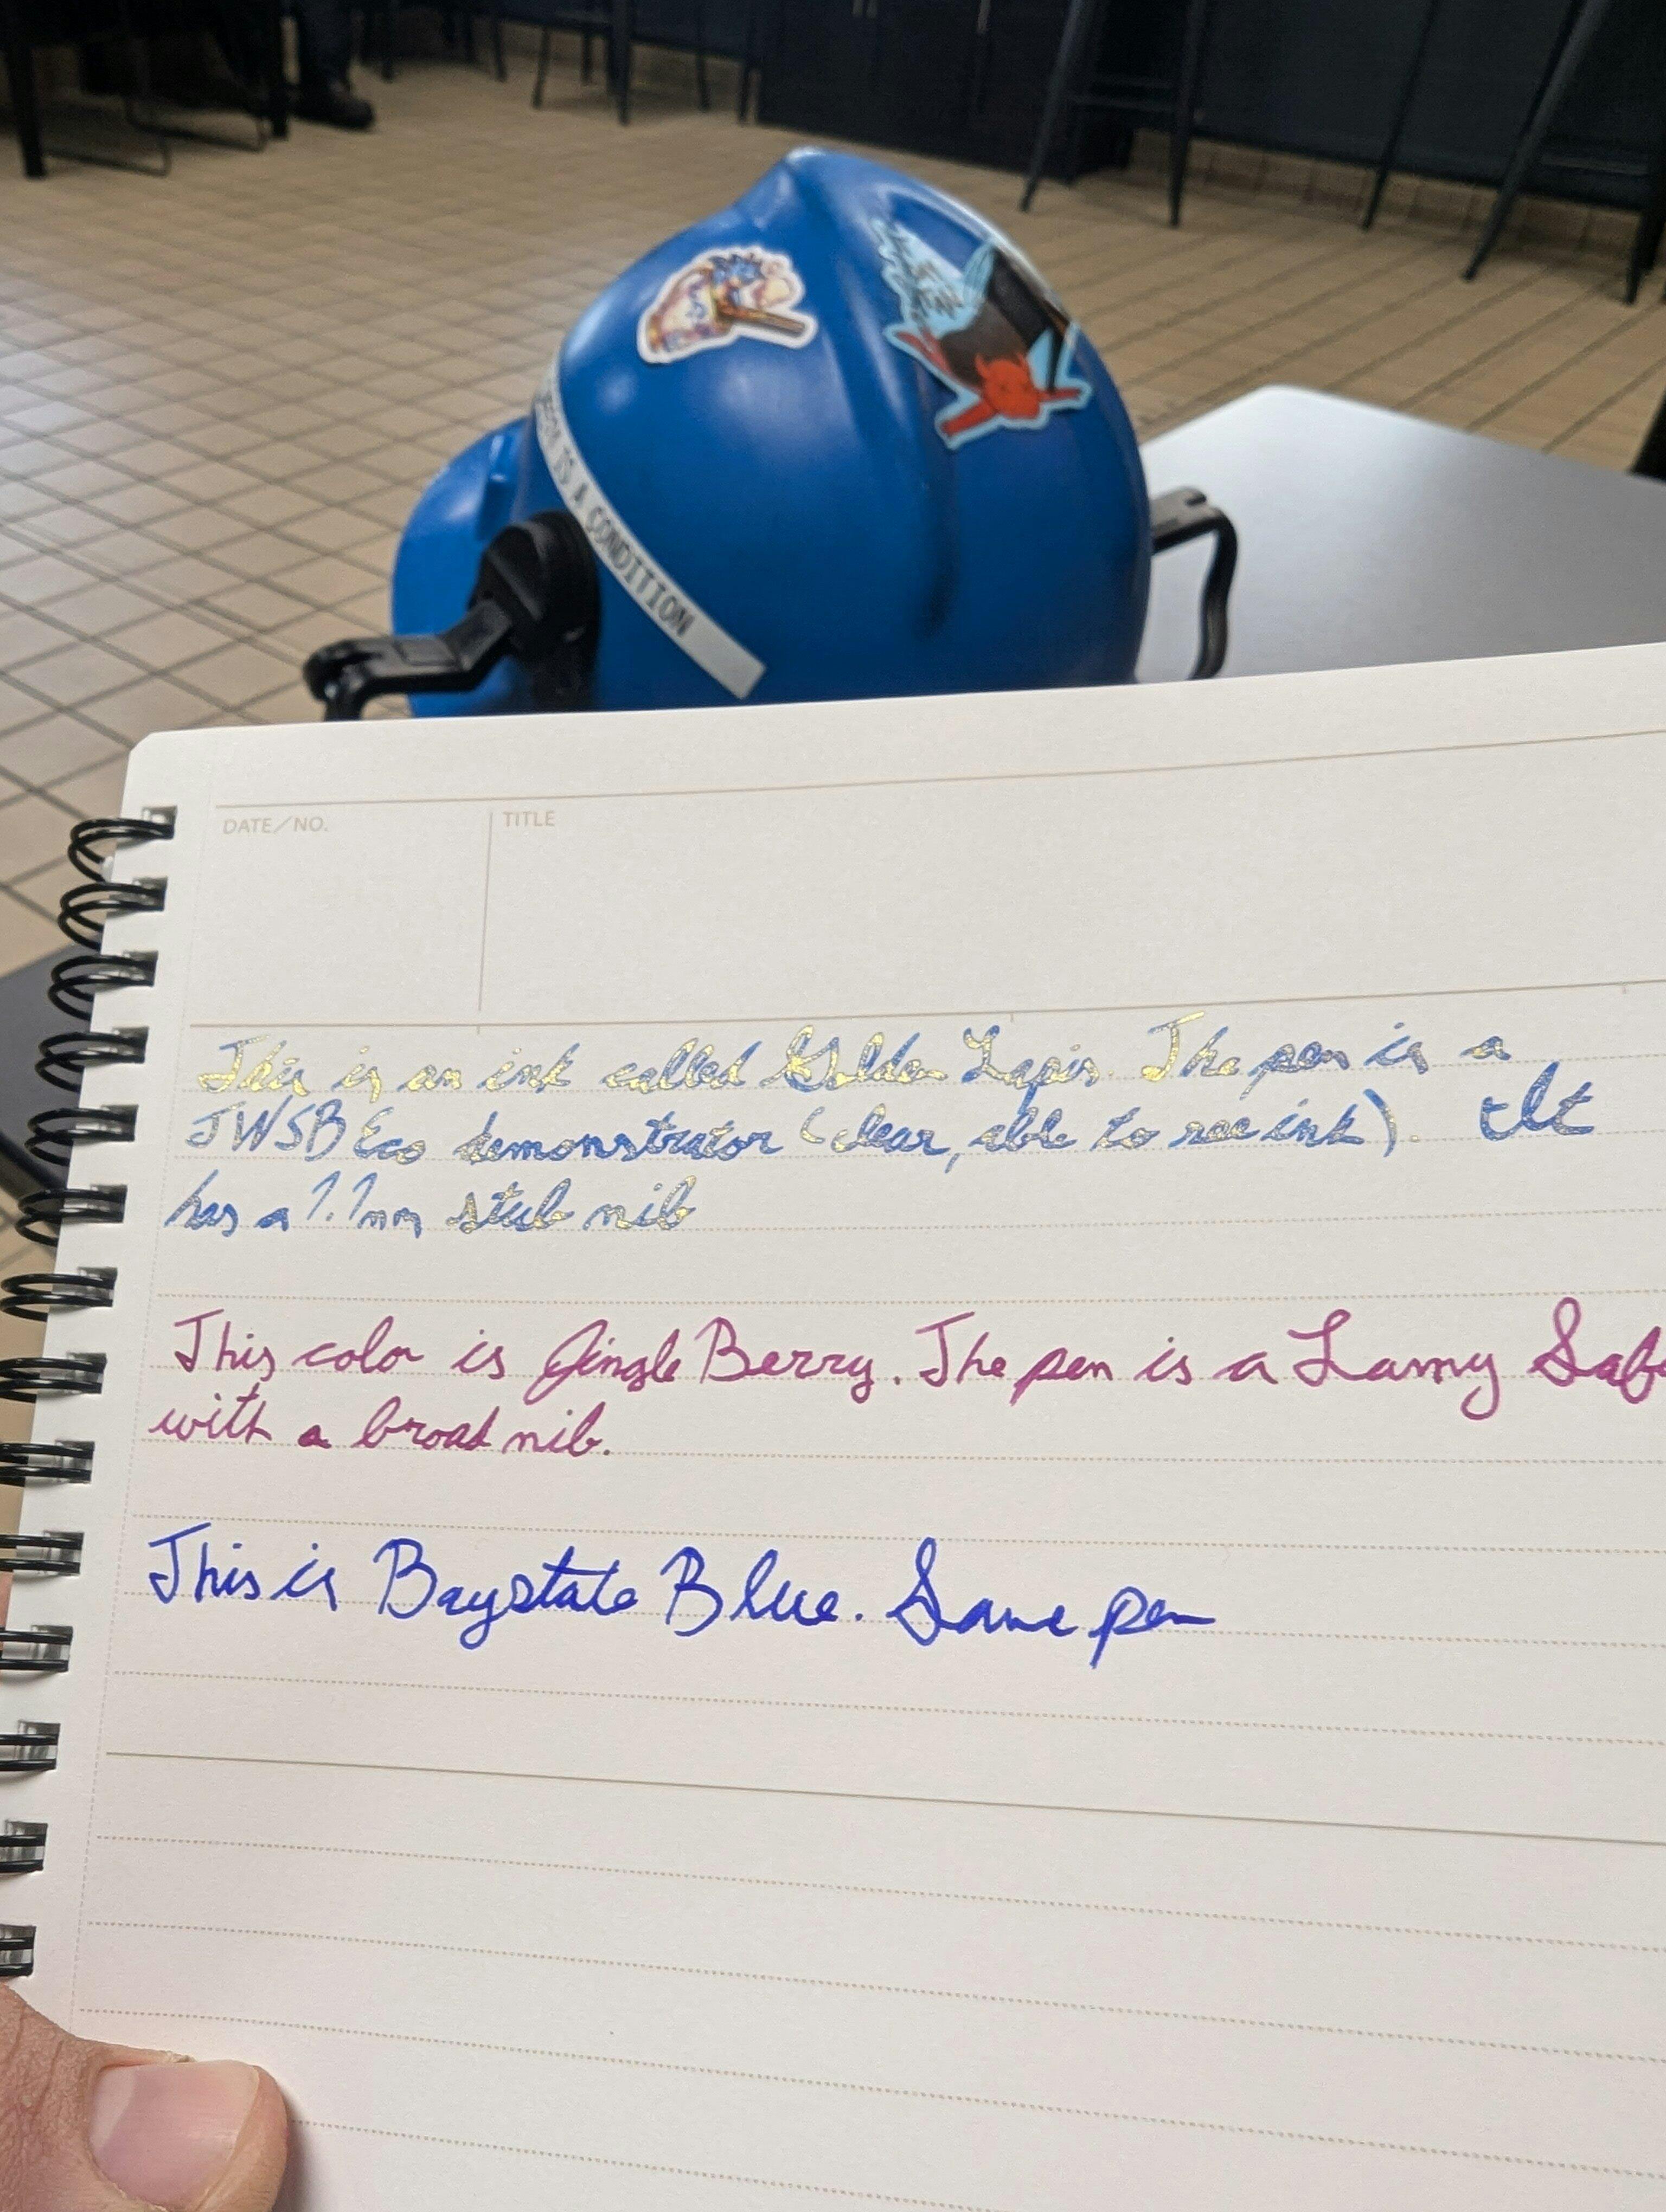 IS A CONDITION
DATE/NO. TITLE
This is an ink called Golden Lapis. The pen is a
JWSB Eco demonstrator (clear, able to see ink). It
has a 1.1mm stub nib
This color is Jingle Berry. The pen is a Lamy Safa
with a broad nib.
This is Baystate Blue. Same pen